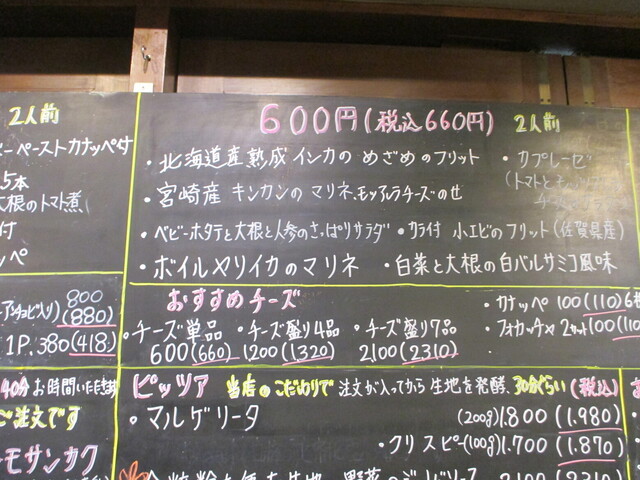 2人前
ーペーストカナッペ付
5本
大根のトマト煮
付
ッペ
800
(880)
1P.380(418)
40分お時間いただきます
ご注文です
モサンカク
600円(税込660円) 2人前
・北海道産熟成インカのめざめのフリット ・カプレーゼ
(トマトと
・宮崎産 キンカンのマリネ、モッツァレラチーズのせ
・ベビーホタテと大根と人参のさっぱりサラダ ・カラ付 小エビのフリット(佐賀県産)
・ボイルヤリイカのマリネ ・白菜と大根の白バルサミコ風味
おすすめチーズ
・チーズ単品 ・チーズ盛り4品 ・チーズ盛り7品
600(660) 1200(1320) 2100(2310)
・カナッペ 100(110)6枚
・フォカッチャ 2カット100(110
ピッツァ 当店のこだわりで 注文が入ってから生地を発酵、30分ぐらい(税込)
・マルゲリータ (200g)1.800(1.980)
・クリスピー(100g)1.700(1.870)
2100(2310)